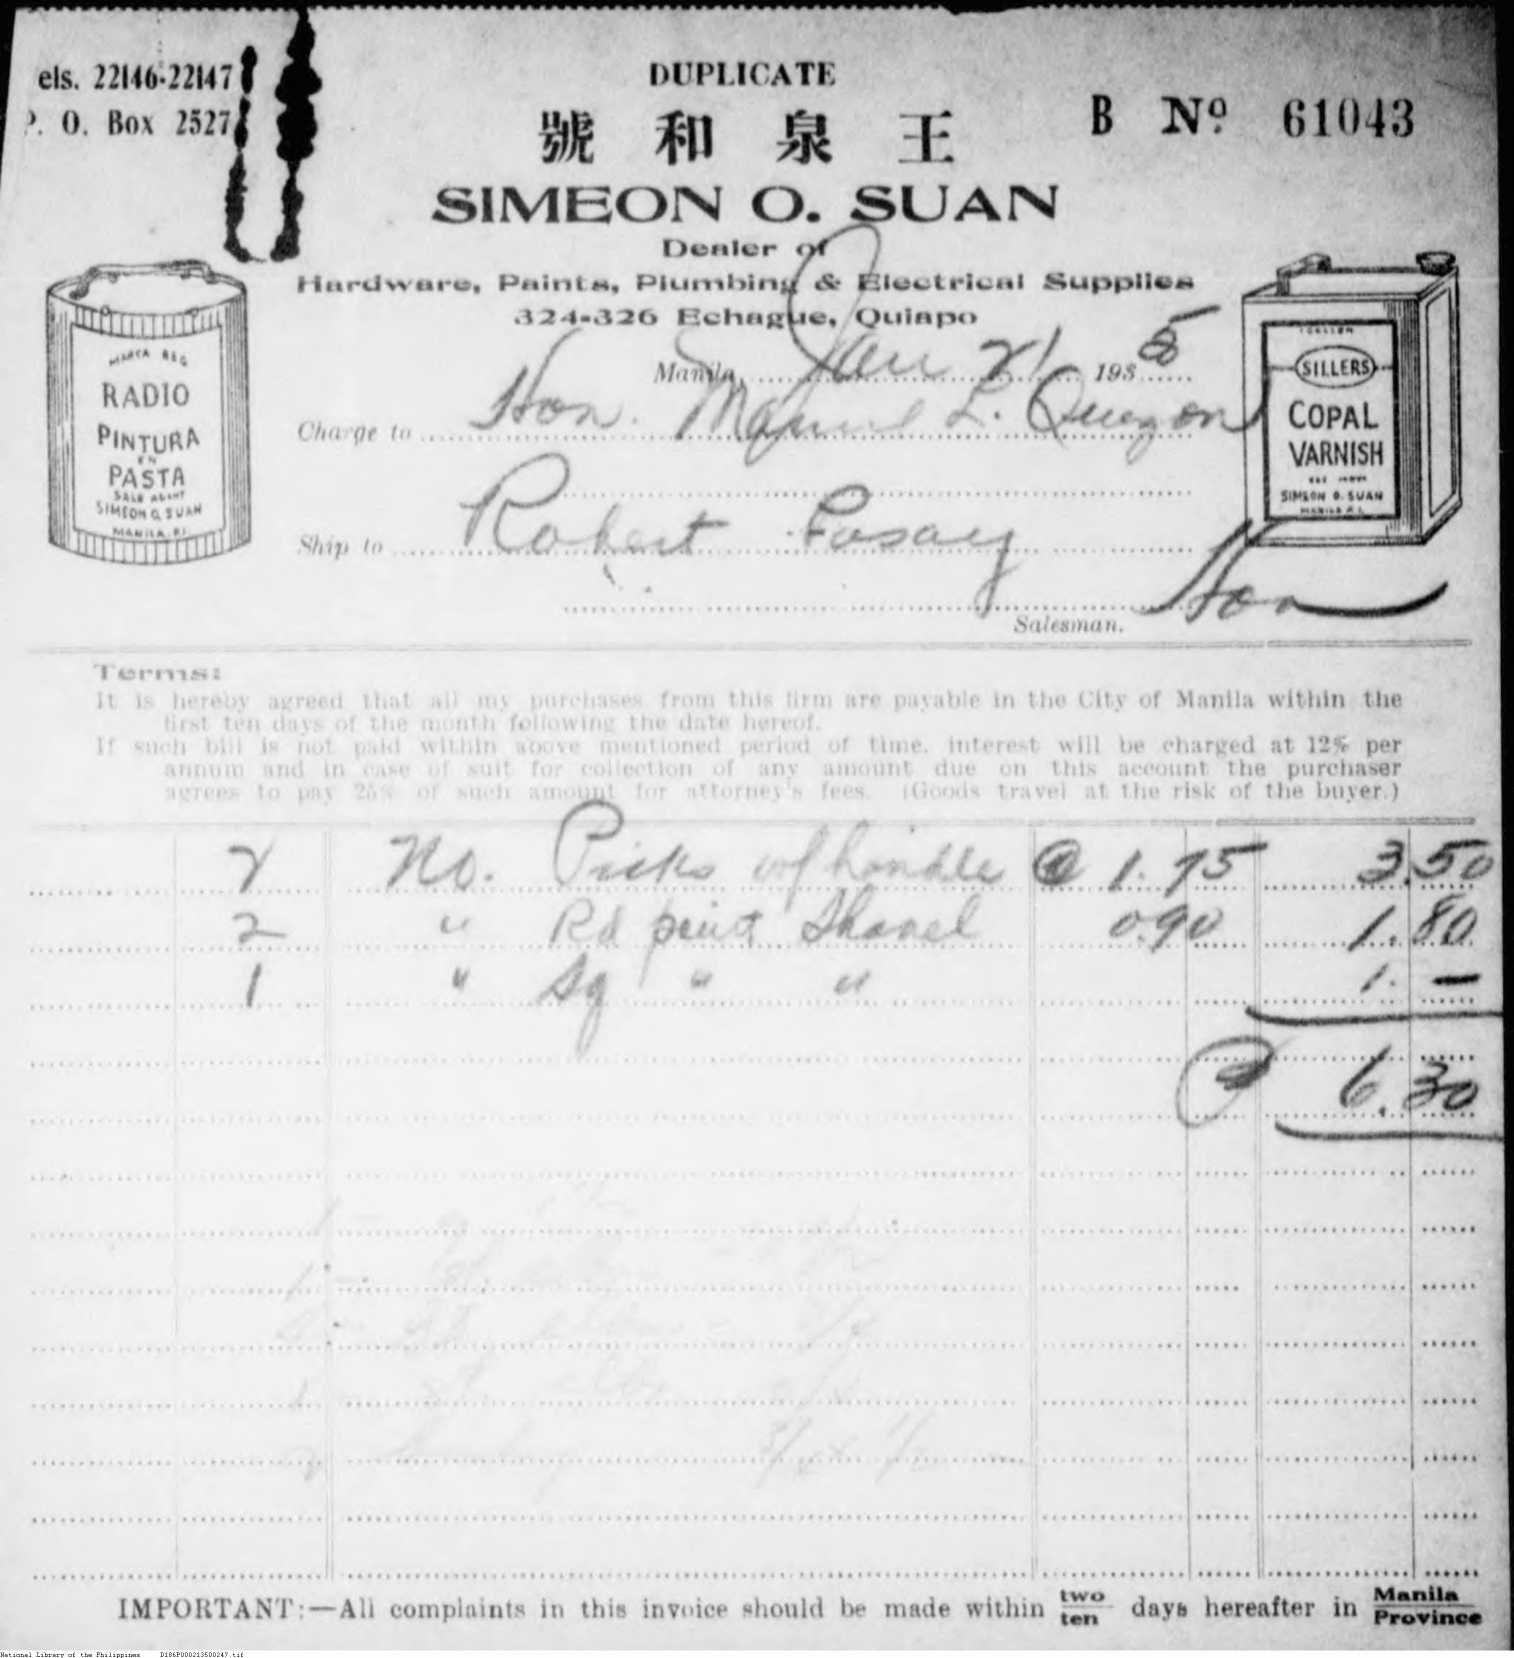 els. 22146-22147
P. O. Box 2527
DUPLICATE
B Nº 61043
號和泉王
SIMEON O. SUAN
Dealer of
Hardware, Paints, Plumbing & Electrical Supplies
324-326 Echague, Quiapo
Manila, Jan 21 1935
Charge to Hon. Manuel L. Quezon
Ship to Robert Pasay
Salesman.
MARCA REG
RADIO
PINTURA
EN
PASTA
SALE AGENT
SIMEON O. SUAN
MANILA. P.I.
1 GALLON
SILLERS
COPAL
VARNISH
SIMEON O. SUAN
MANILA P.I.
Terms:
It is hereby agreed that all my purchases from this firm are payable in the City of Manila within the
first ten days of the month following the date hereof.
If such bill is not paid within above mentioned period of time, interest will be charged at 12% per
annum and in case of suit for collection of any amount due on this account the purchaser
agrees to pay 25% of such amount for attorney's fees. (Goods travel at the risk of the buyer.)
2 No. Picks w/handle @ 1.75 3.50
2 " Rd point Shovel 0.90 1.80
1 " Sq " " 1. —
₱ 6.30
IMPORTANT:—All complaints in this invoice should be made within two/ten days hereafter in Manila/Province
National Library of the Philippines D186P000213500247.tif